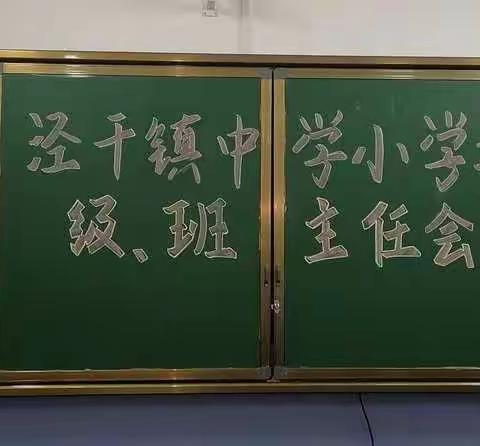 泾干镇中学小学
级、班主任会